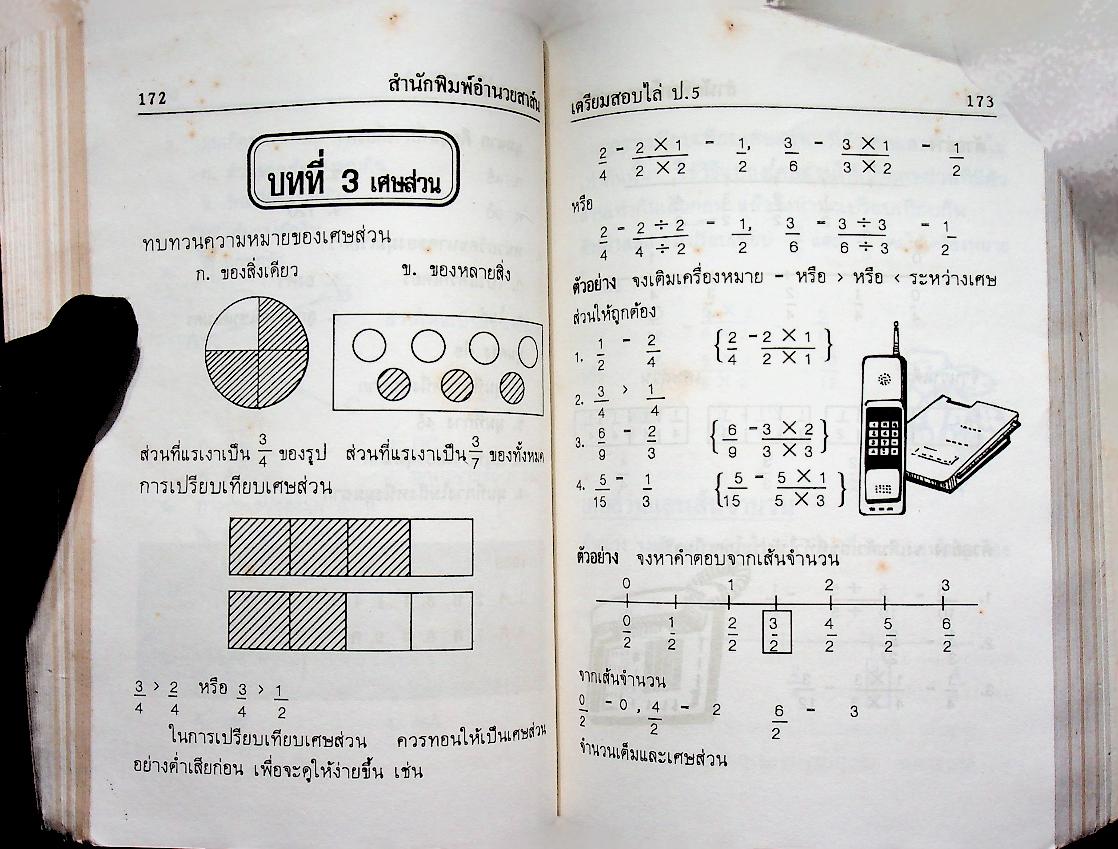 172 สำนักพิมพ์อำนวยสาส์น
บทที่ 3 เศษส่วน
ทบทวนความหมายของเศษส่วน
ก. ของสิ่งเดียว ข. ของหลายสิ่ง
ส่วนที่แรเงาเป็น 3/4 ของรูป ส่วนที่แรเงาเป็น 3/7 ของทั้งหมด
การเปรียบเทียบเศษส่วน
3/4 > 2/4 หรือ 3/4 > 1/2
ในการเปรียบเทียบเศษส่วน ควรทอนให้เป็นเศษส่วน
อย่างต่ำเสียก่อน เพื่อจะดูให้ง่ายขึ้น เช่น
เตรียมสอบไล่ ป.5 173
2/4 - 2 × 1/2 × 2 - 1/2, 3/6 - 3 × 1/3 × 2 - 1/2
หรือ
2/4 - 2 ÷ 2/4 ÷ 2 - 1/2, 3/6 - 3 ÷ 3/6 ÷ 3 - 1/2
ตัวอย่าง จงเติมเครื่องหมาย - หรือ > หรือ < ระหว่างเศษ
ส่วนให้ถูกต้อง
1. 1/2 - 2/4 {2/4 - 2 × 1/2 × 1}
2. 3/4 > 1/4
3. 6/9 - 2/3 {6/9 - 3 × 2/3 × 3}
4. 5/15 - 1/3 {5/15 - 5 × 1/5 × 3}
ตัวอย่าง จงหาคำตอบจากเส้นจำนวน
0 1 2 3
0/2 1/2 2/2 3/2 4/2 5/2 6/2
จากเส้นจำนวน
0/2 - 0, 4/2 - 2 6/2 - 3
จำนวนเต็มและเศษส่วน